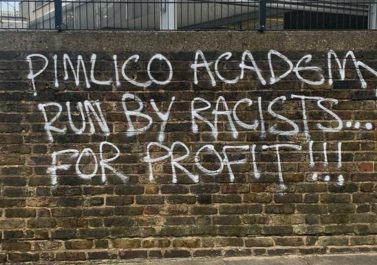 PIMLICO ACADEM
RUN BY RACISTS...
FOR PROFIT!!!